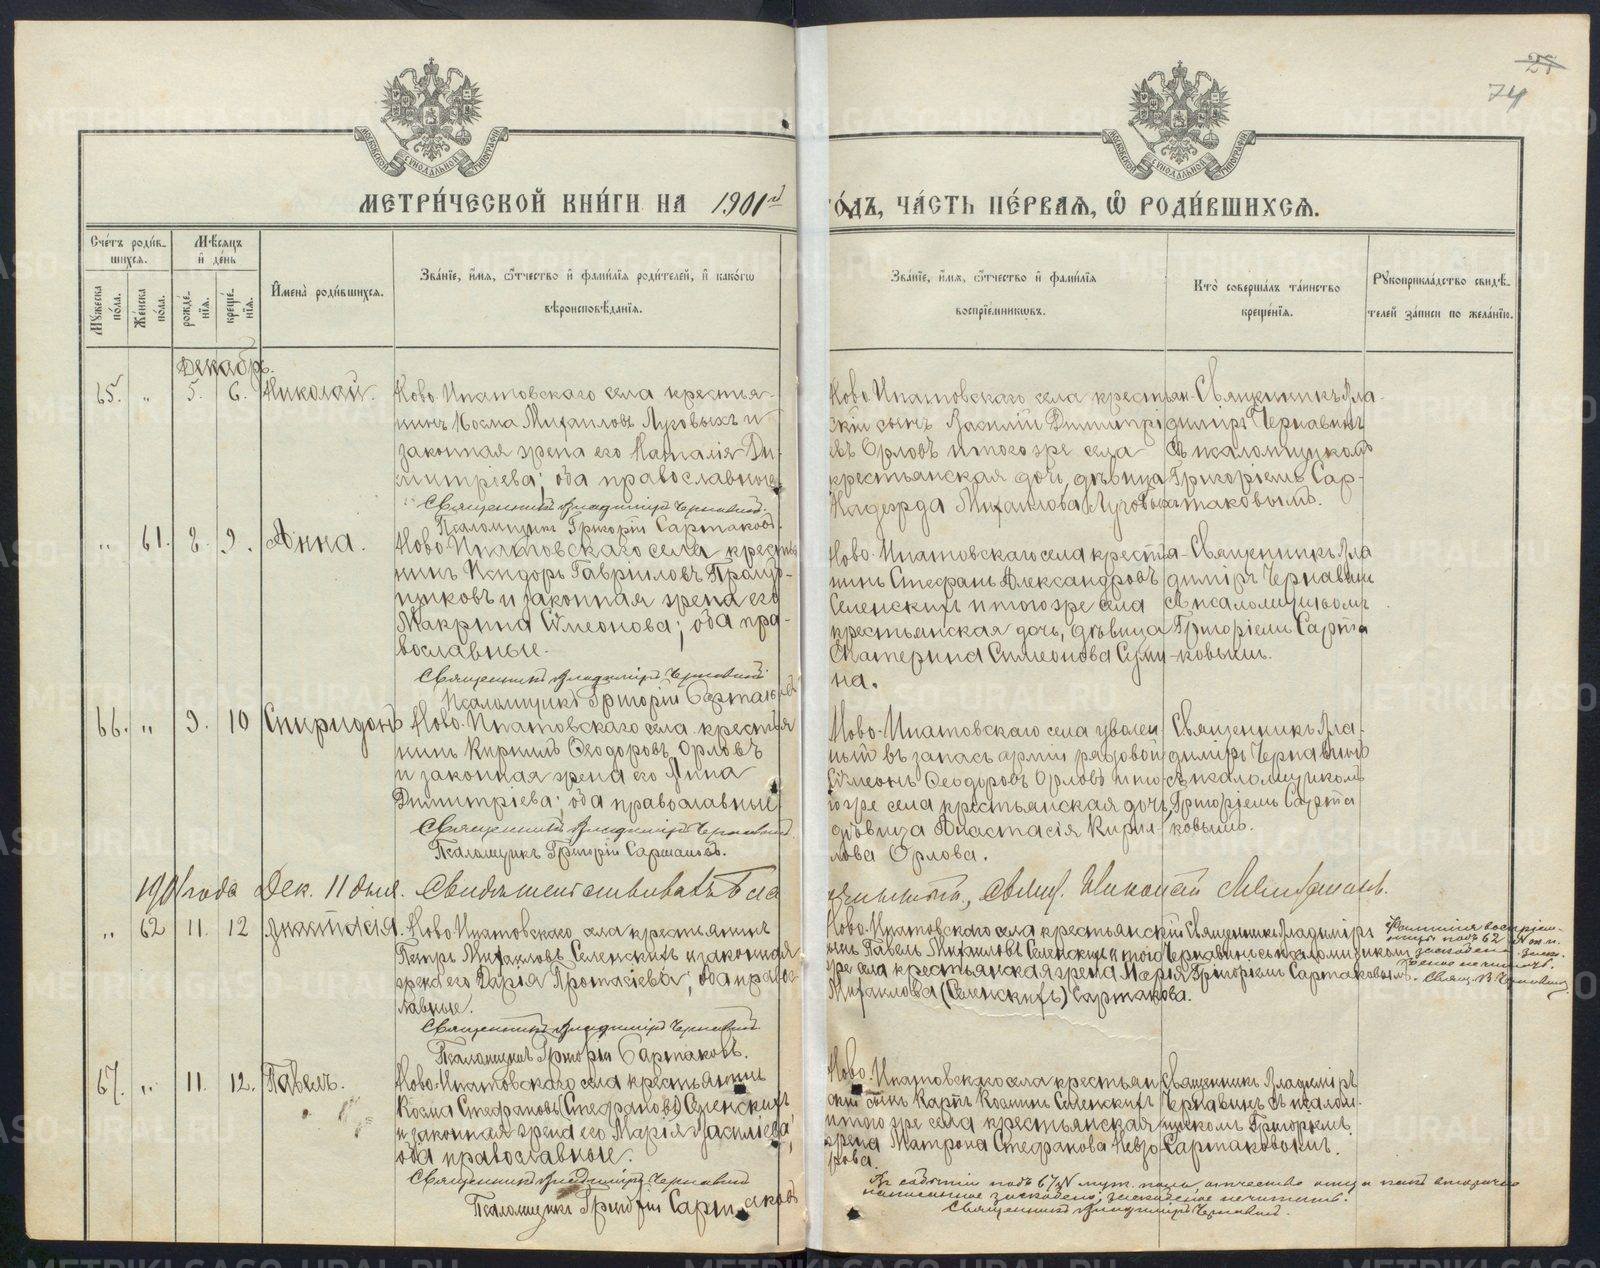 25
74
МОСКОВСКОЙ СѴНОДАЛЬНОЙ ТИПОГРАФІИ
МОСКОВСКОЙ СѴНОДАЛЬНОЙ ТИПОГРАФІИ
МЕТРИ́ЧЕСКОЙ КНИ́ГИ НА 1901й
ГО́ДЪ, ЧА́СТЬ ПЕ́РВАѦ, Ѡ҆ РОДИ́ВШИХСѦ.
Сче́тъ роди́в-
шихсѧ.
Мꙋ́жеска по́ла.
Же́нска по́ла.
Мѣ́сѧцъ
и҆ де́нь
рожде́нїѧ.
креще́нїѧ.
И҆мена̀ роди́вшихсѧ.
Зва́нїе, и҆́мѧ, ѻ҆́тчество и҆ фами́лїѧ роди́телей, и҆ како́гѡ
вѣроисповѣ́данїѧ.
Зва́нїе, и҆́мѧ, ѻ҆́тчество и҆ фами́лїѧ
воспрїе́мникѡвъ.
Кто̀ соверша́лъ та́инство
креще́нїѧ.
Рꙋкоприкла́дство свидѣ́-
телей за́писи по жела́нїю.
Декабрь.
65. „ 5. 6. Николай.
Ново-Ипатовскаго села крестья-
нинъ Косма Михаиловъ Луговыхъ и
законная жена его Наталія Ди-
митріева; оба православные
Священникъ Владиміръ Чернавинъ.
Псаломщикъ Григорій Сартаковъ.
Ново-Ипатовскаго села крестьян-
скій сынъ Василій Димитрі
евъ Орловъ и того же села
крестьянская дочь, дѣвица
Надежда Михаилова Луговых
Священникъ Вла-
диміръ Чернавинъ
съ псаломщикомъ
Григоріемъ Сар-
таковымъ.
„ 61. 8. 9. Анна.
Ново-Ипатовскаго села крестья
нинъ Исидоръ Гавріиловъ
и законная жена его
Макрина Симеонова; оба пра-
вославные.
Священникъ Владиміръ Чернавинъ
Псаломщикъ Григорій Сартаковъ
Ново-Ипатовскаго села крестья-
нинъ Стефанъ Александровъ
Селенскихъ и того же села
крестьянская дочь, дѣвица
Екатерина Симеонова
на.
Священникъ Вла
диміръ Чернавинъ
съ псаломщикомъ
Григоріемъ Сарта
-ковымъ.
66. „ 9. 10 Спиридонъ
Ново-Ипатовскаго села крестья
нинъ Кириллъ Ѳеодоровъ Орловъ
и законная жена его Анна
Димитріева; оба православные
Священникъ Владиміръ Чернавинъ.
Псаломщикъ Григорій Сартаковъ.
Ново-Ипатовскаго села уволен
ный въ запасъ арміи рядовой
Симеонъ Ѳеодоровъ Орловъ и то-
го же села крестьянская дочь,
дѣвица Анастасія Кирил-
лова Орлова.
Священникъ Вла-
диміръ Чернавинъ
съ псаломщикомъ
Григоріемъ Сарта
ковымъ.
1901 года Дек. 11 дня. Свидѣтельствовалъ Бла
гочинный, Свящ. Николай
„ 62 11. 12 Анастасія.
Ново-Ипатовскаго села крестьянинъ
Петръ Михаиловъ Селенскихъ и законная
жена его Дарія Протасіева; оба право
славные.
Священникъ Владиміръ Чернавинъ
Псаломщикъ Григорій Сартаковъ.
Ново-Ипатовскаго села крестьянскій
сынъ Павелъ Михаиловъ Селенскихъ и того
же села крестьянская жена Марія
Михаилова (Селенскихъ) Сартакова.
Священникъ Владиміръ
Чернавинъ съ псаломщикомъ
Григоріемъ Сартаковымъ.
Фамилія воспріем-
ницы подъ 62 №
Свящ. В. Чернавинъ
67. „ 11. 12. Павелъ.
Ново-Ипатовскаго села крестьянинъ
Козма Стефановъ (Стефановъ) Селенскихъ
и законная жена его Марія Василіева;
оба православные.
Священникъ Владиміръ Чернавинъ
Псаломщикъ Григорій Сартаковъ
Ново-Ипатовскаго села крестьян
скій сынъ Карпъ Козминъ Селенскихъ
и того же села крестьянская
жена Матрона Стефанова Невзо
рова.
Священникъ Владиміръ
Чернавинъ съ псалом-
щикомъ Григоріемъ
Сартаковымъ.
Въ событіи подъ 67 № муж. пола, отчество отца какъ вторично
написанное заскоблено; заскобленое нечитать.
Священникъ Владиміръ Чернавинъ.
METRIKI.GASO-URAL.RU